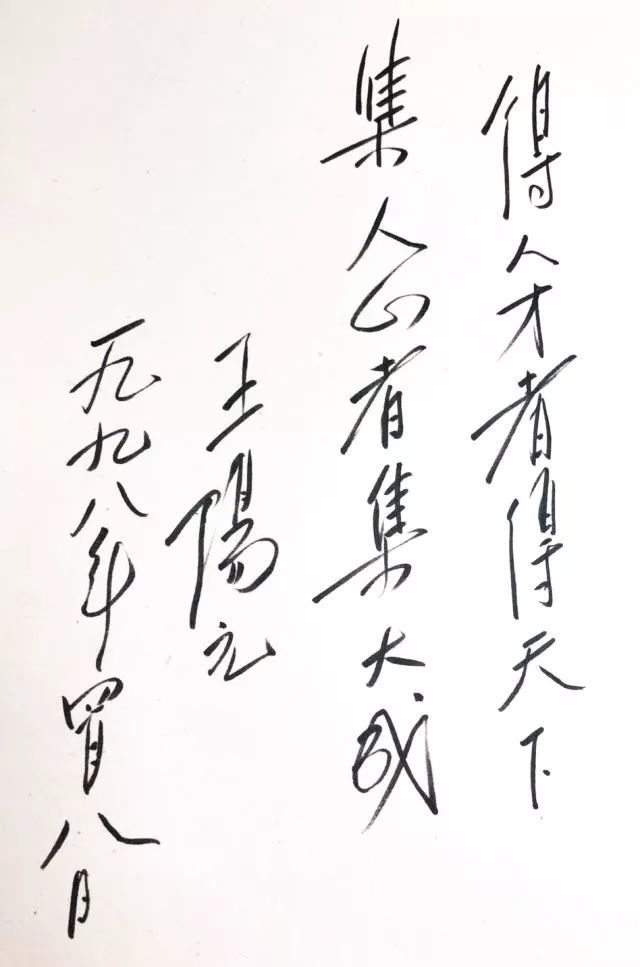 得人才者得天下
集人心者集大成
王陽元
一九九八年四月八日